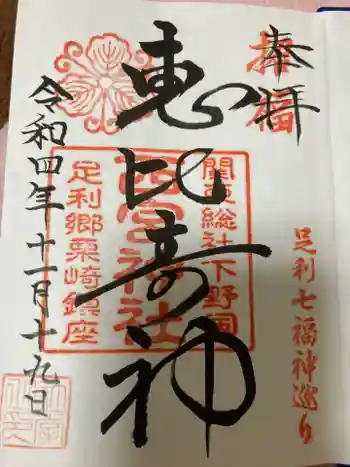 奉拝
招福
足利七福神巡り
恵比寿神
関東総社下野国
西宮神社
足利郷栗崎鎮座
令和四年十一月十九日